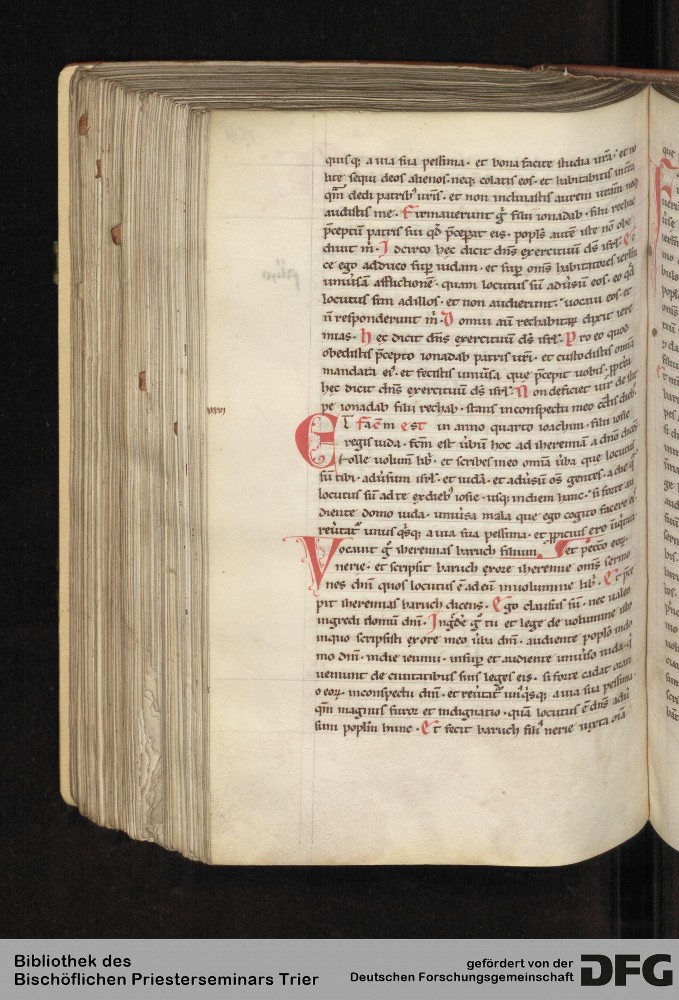 quisq; a uia sua pessima · et bona facite studia ura · et no
lite sequi deos alienos · neq; colatis eos · et habitabitis in tra
qm dedi patrib uris · et non inclinastis aurem uram neq
audistis me · Firmauerunt g filii ionadab · filii rechab
pceptu patris sui qd pcepat eis · popls aute iste no obe
diuit m · Idcirco hec dicit dns exercituu ds isrl · Ec
ce ego adduco sup iudam · et sup oms habitatores ierlm
uniusam afflictione · quam locutus sum adusu eos · eo qd
locutus sum ad illos · et non audierunt · uocaui eos · et
n responderunt m · Domui au rechabitar dixit iere
mias · hec dicit dns exercituu ds isrl · Pro eo quod
obedistis pcepto ionadab patris uri · et custodistis omnia
mandata ei · et fecistis uniusa que pcepit uobis · pptea
hec dicit dns exercituu ds isrl · Non deficiet uir de stir
pe ionadab filii rechab · stans in conspectu meo cctis dieb ·
xxxvi
Et factm est in anno quarto ioachim · filii iosie
regis iuda · fcm est ubu hoc ad iheremia a dno dicens
Tolle volum lib · et scribes in eo omnia uba que locutus
su tibi · adusum isrl · et iuda · et adusu os gentes · a die q
locutus su ad te ex dieb iosie · usq; in diem hanc · si forte au
diente domo iuda · uniusa mala que ego cogito facere ei
reutat unusqsq; a uia sua pessima · et ppicius ero iniqtati
Vocauit g iheremias baruch filium et pecco eor ·
nerie · et scripsit baruch ex ore iheremie oms sermo
nes dni quos locutus e ad eu in uolumine lib · Et pce
pit iheremias baruch dicens · Ego clausus su · nec ualeo
ingredi domu dni · Ingdere g tu et lege de uolumine isto
in quo scripsisti ex ore meo uba dni · audiente poplo in do
mo dni · in die ieiunii · insup et audiente uniuso iuda · q
ueniunt de ciuitatibus suis leges eis · si forte cadat orati
o eor · in conspectu dni · et reutat unqsq; a uia sua pessima ·
qm magnus furor et indignatio · qua locutus e dns adu
sum poplm hunc · Et fecit baruch fili nerie iuxta oia
Bibliothek des
Bischöflichen Priesterseminars Trier
gefördert von der
Deutschen Forschungsgemeinschaft
DFG